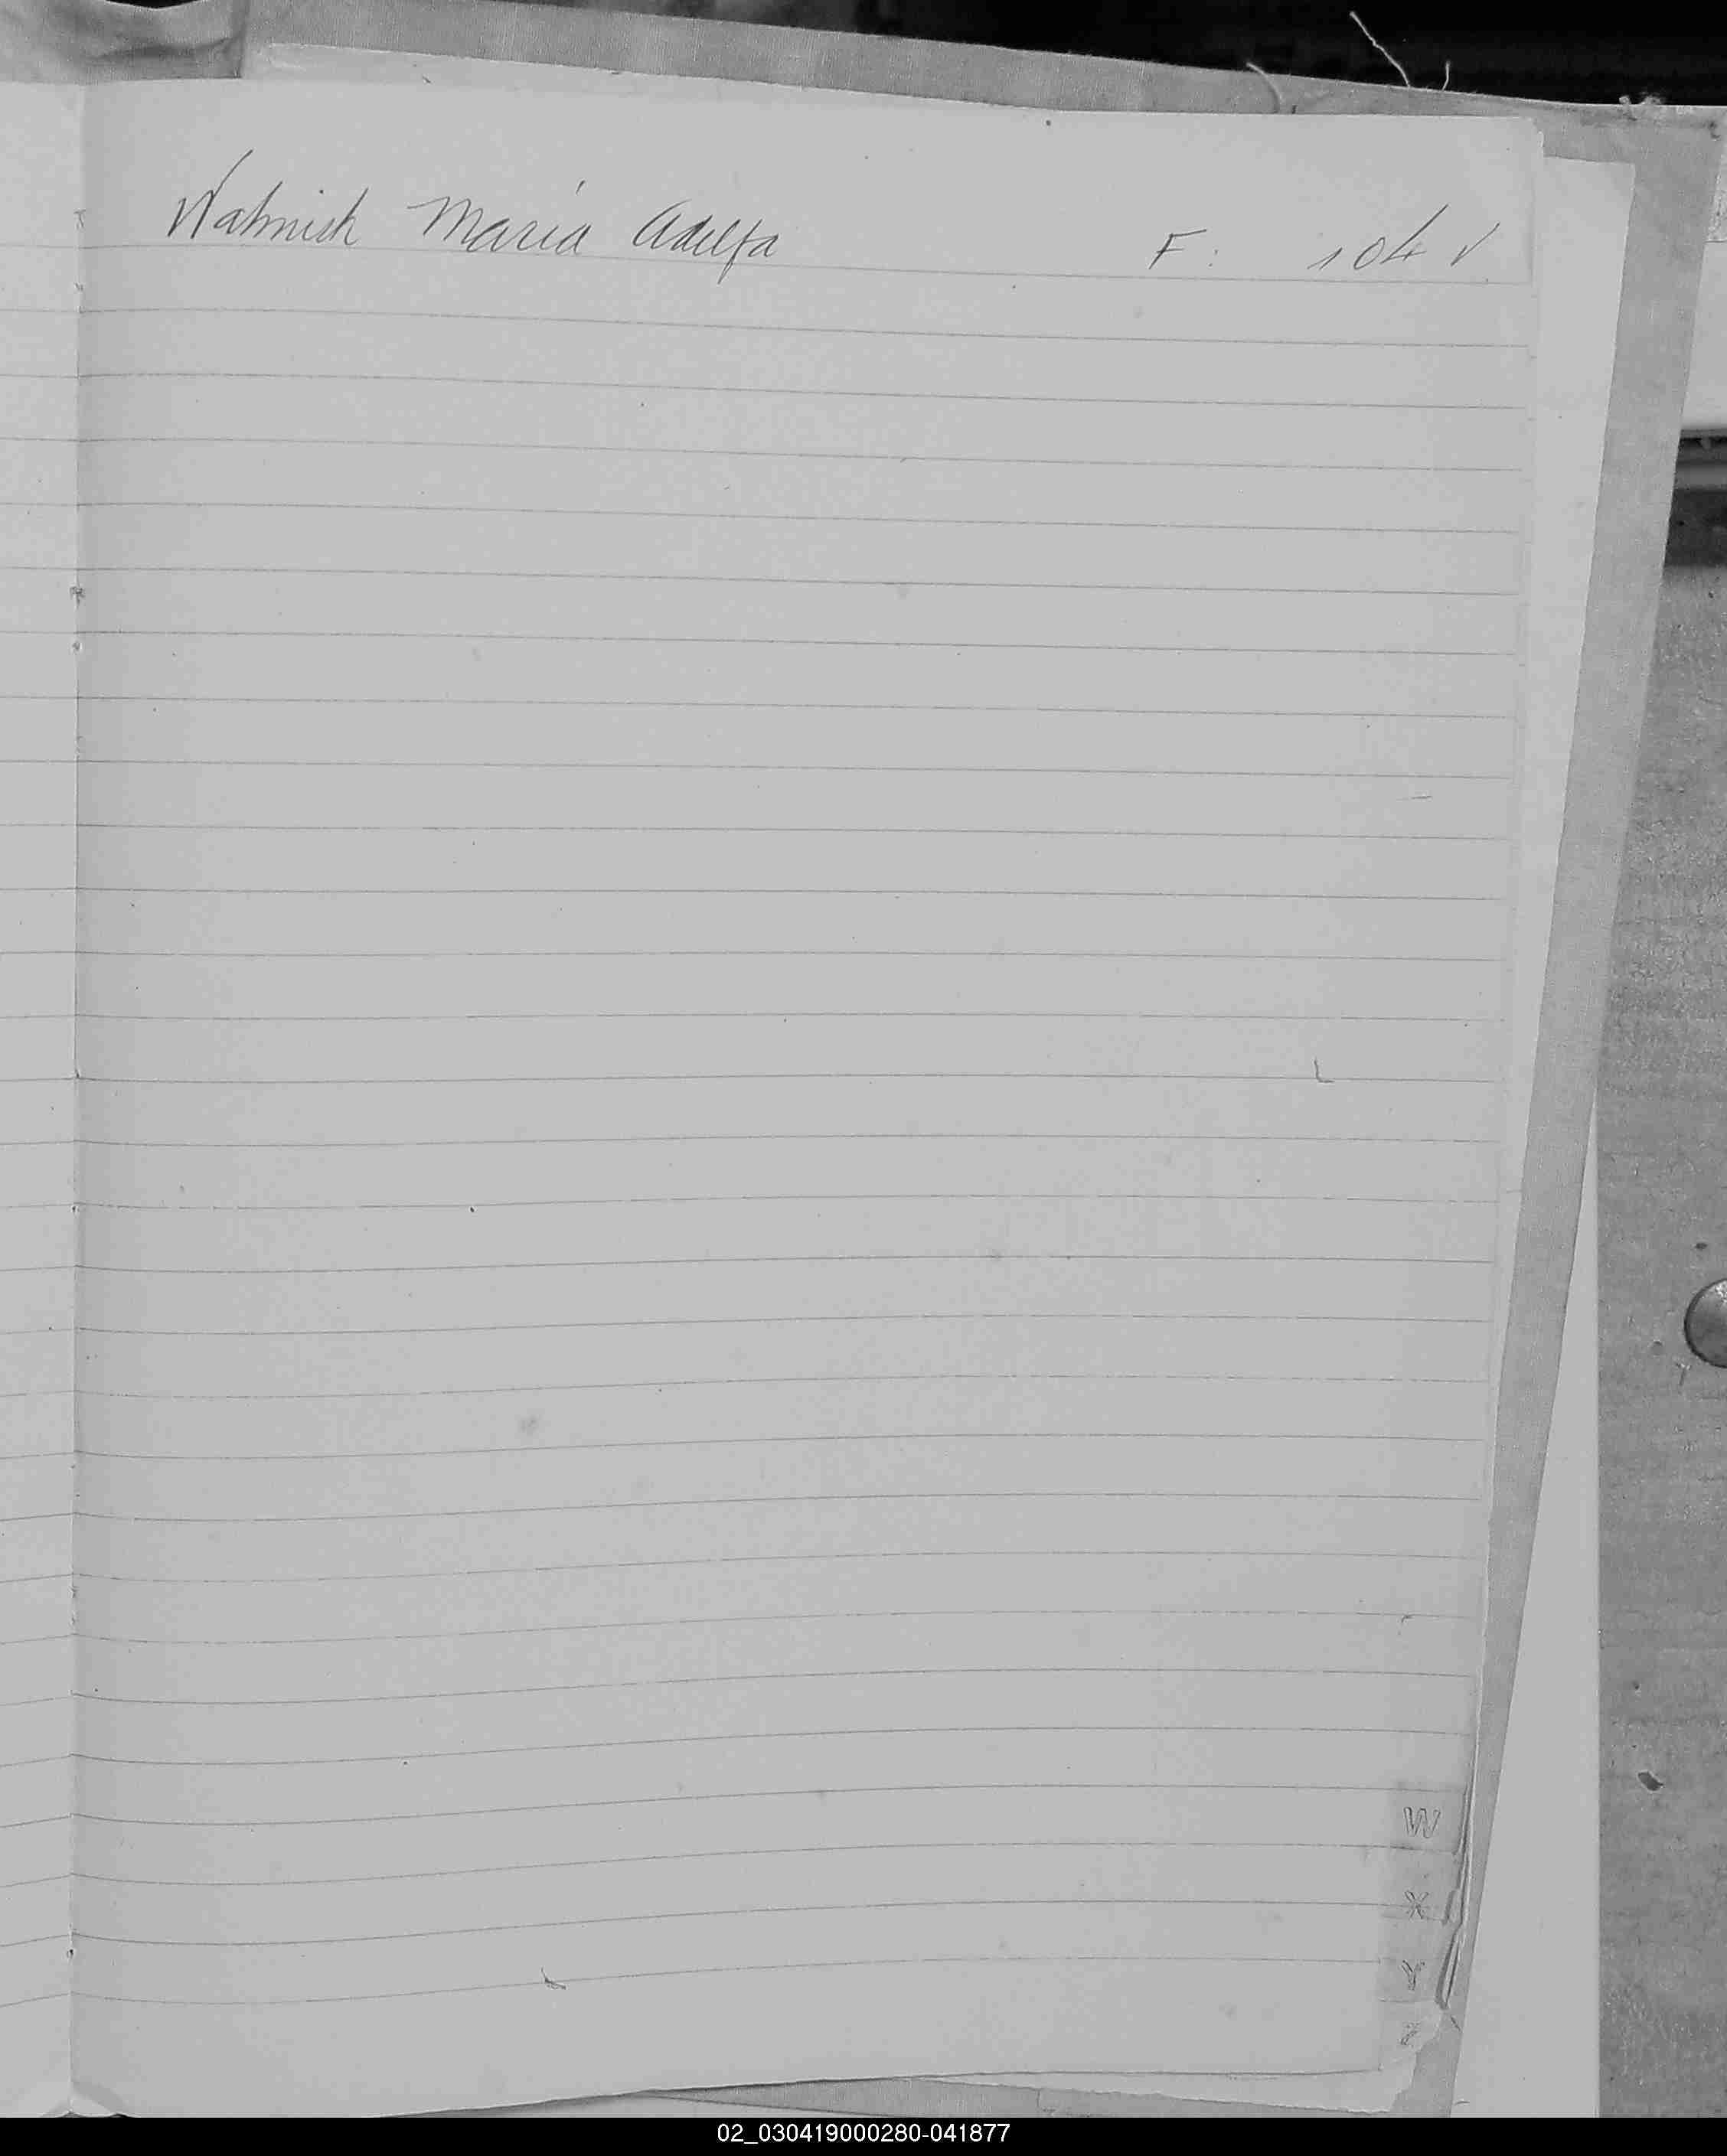 Wahnish María Adelfa F: 104 v
W
X
Y
Z
02_030419000280-041877